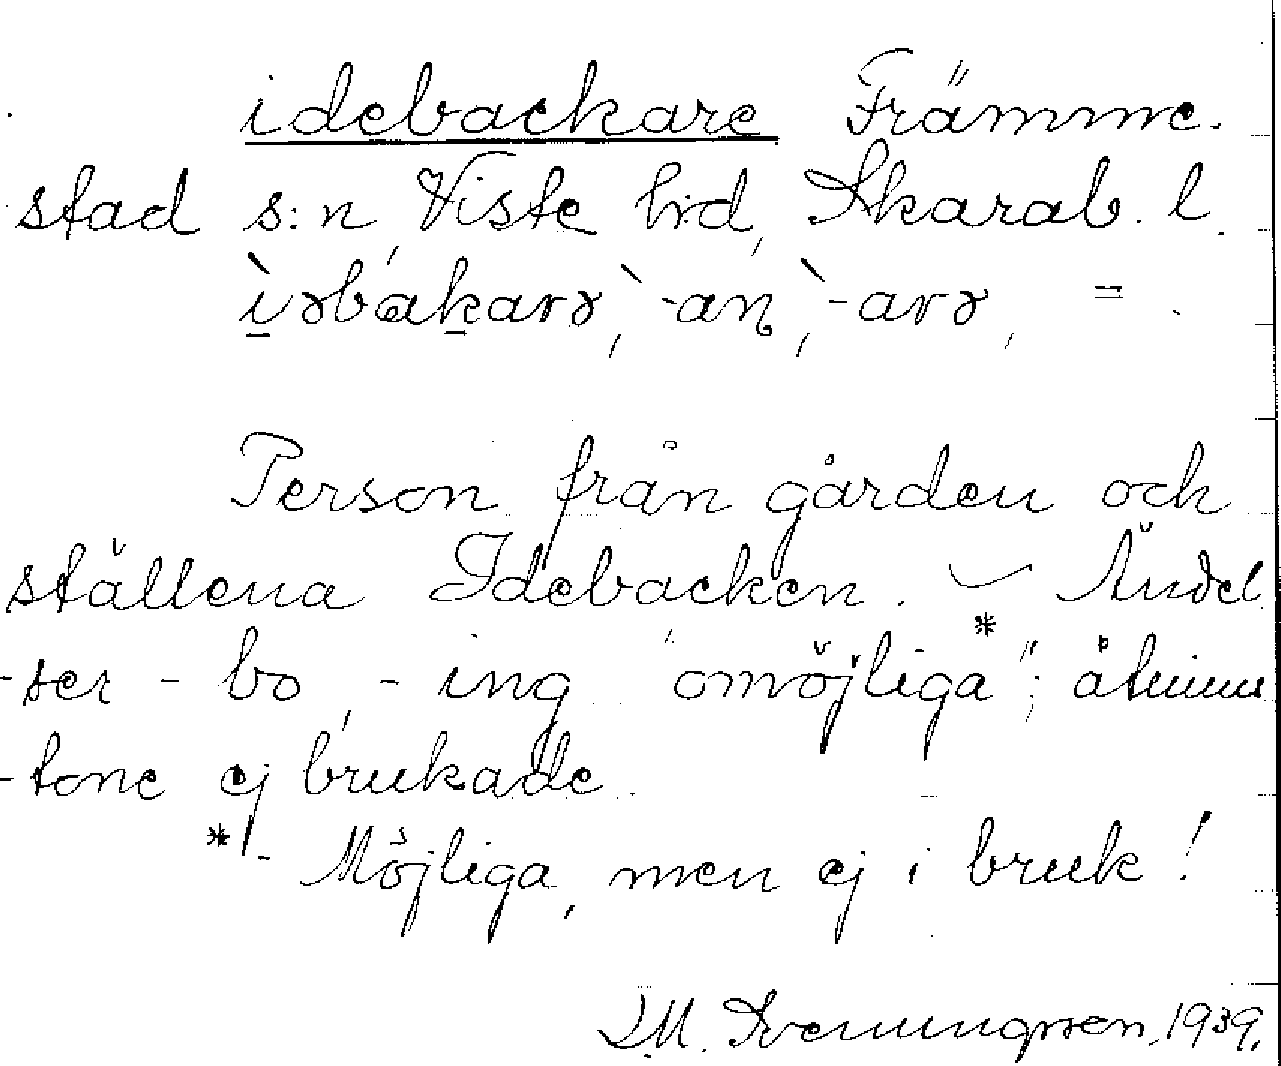 idebackare Främme-
stad s:n, Viste hd, Skarab. l.
Person från gården och
ställena Idebacken. – Ändel-
ser -bo, -ing "omöjliga*"; åtmins-
-tone ej brukade.
*- Möjliga, men ej i bruk!
Svenungsson, 1939.